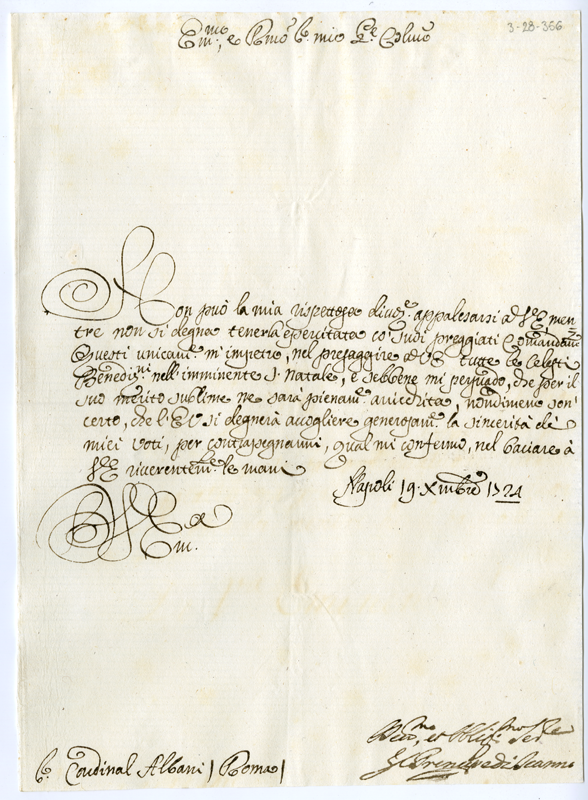 3-28-366
Em.mo, e Rmo S.r mio P.ne Colmo
Non può la mia rispettosa divoz.e appalesarsi à V.E, men
tre non si degna tenerla esercitata co' suoi preggiati Comandam.ti
Questi unicam.e m'impetro, nel presaggire à V.E tutte le Celesti
Benediz.ni nell'imminente S. Natale, e sebbene mi persuado, che per il
suo merito sublime ne sarà pienam.e aricchita, nondimeno son'
certo, che l'E.V si degnerà accogliere generosam.e la sincerità dei
miei voti, per contrasegnarmi, qual mi confermo, nel baciare à
V.E riverentem.e le mani
Napoli 19 Xmbre 1724
V.ra
Em.
Dev.mo, et Obligat.mo Ser.re
Il Prencipe di Scanno
S.r Cardinal Albani / Roma /